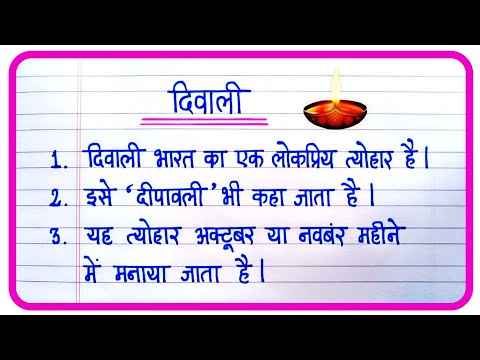 दिवाली
1. दिवाली भारत का एक लोकप्रिय त्योहार है।
2. इसे 'दीपावली' भी कहा जाता है।
3. यह त्योहार अक्टूबर या नवबंर महीने
में मनाया जाता है।